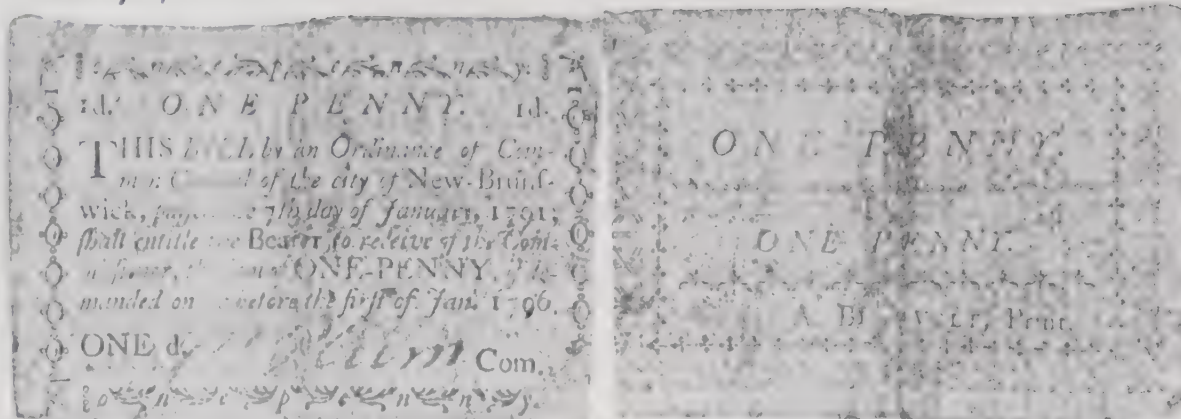 o n e p e n n y.
1d. ONE PENNY. 1d.
THIS by an Ordinance of Com-
mon of the city of New-Brunſ-
wick, 7th day of January, 1791,
ſhall entitle the Bearer to receive of the Com-
ONE-PENNY, if de-
manded on before the firſt of Jan. 1796.
ONE d. Com.
o n e p e n n y.
ONE PENNY.
ONE PENNY.
A. Print.